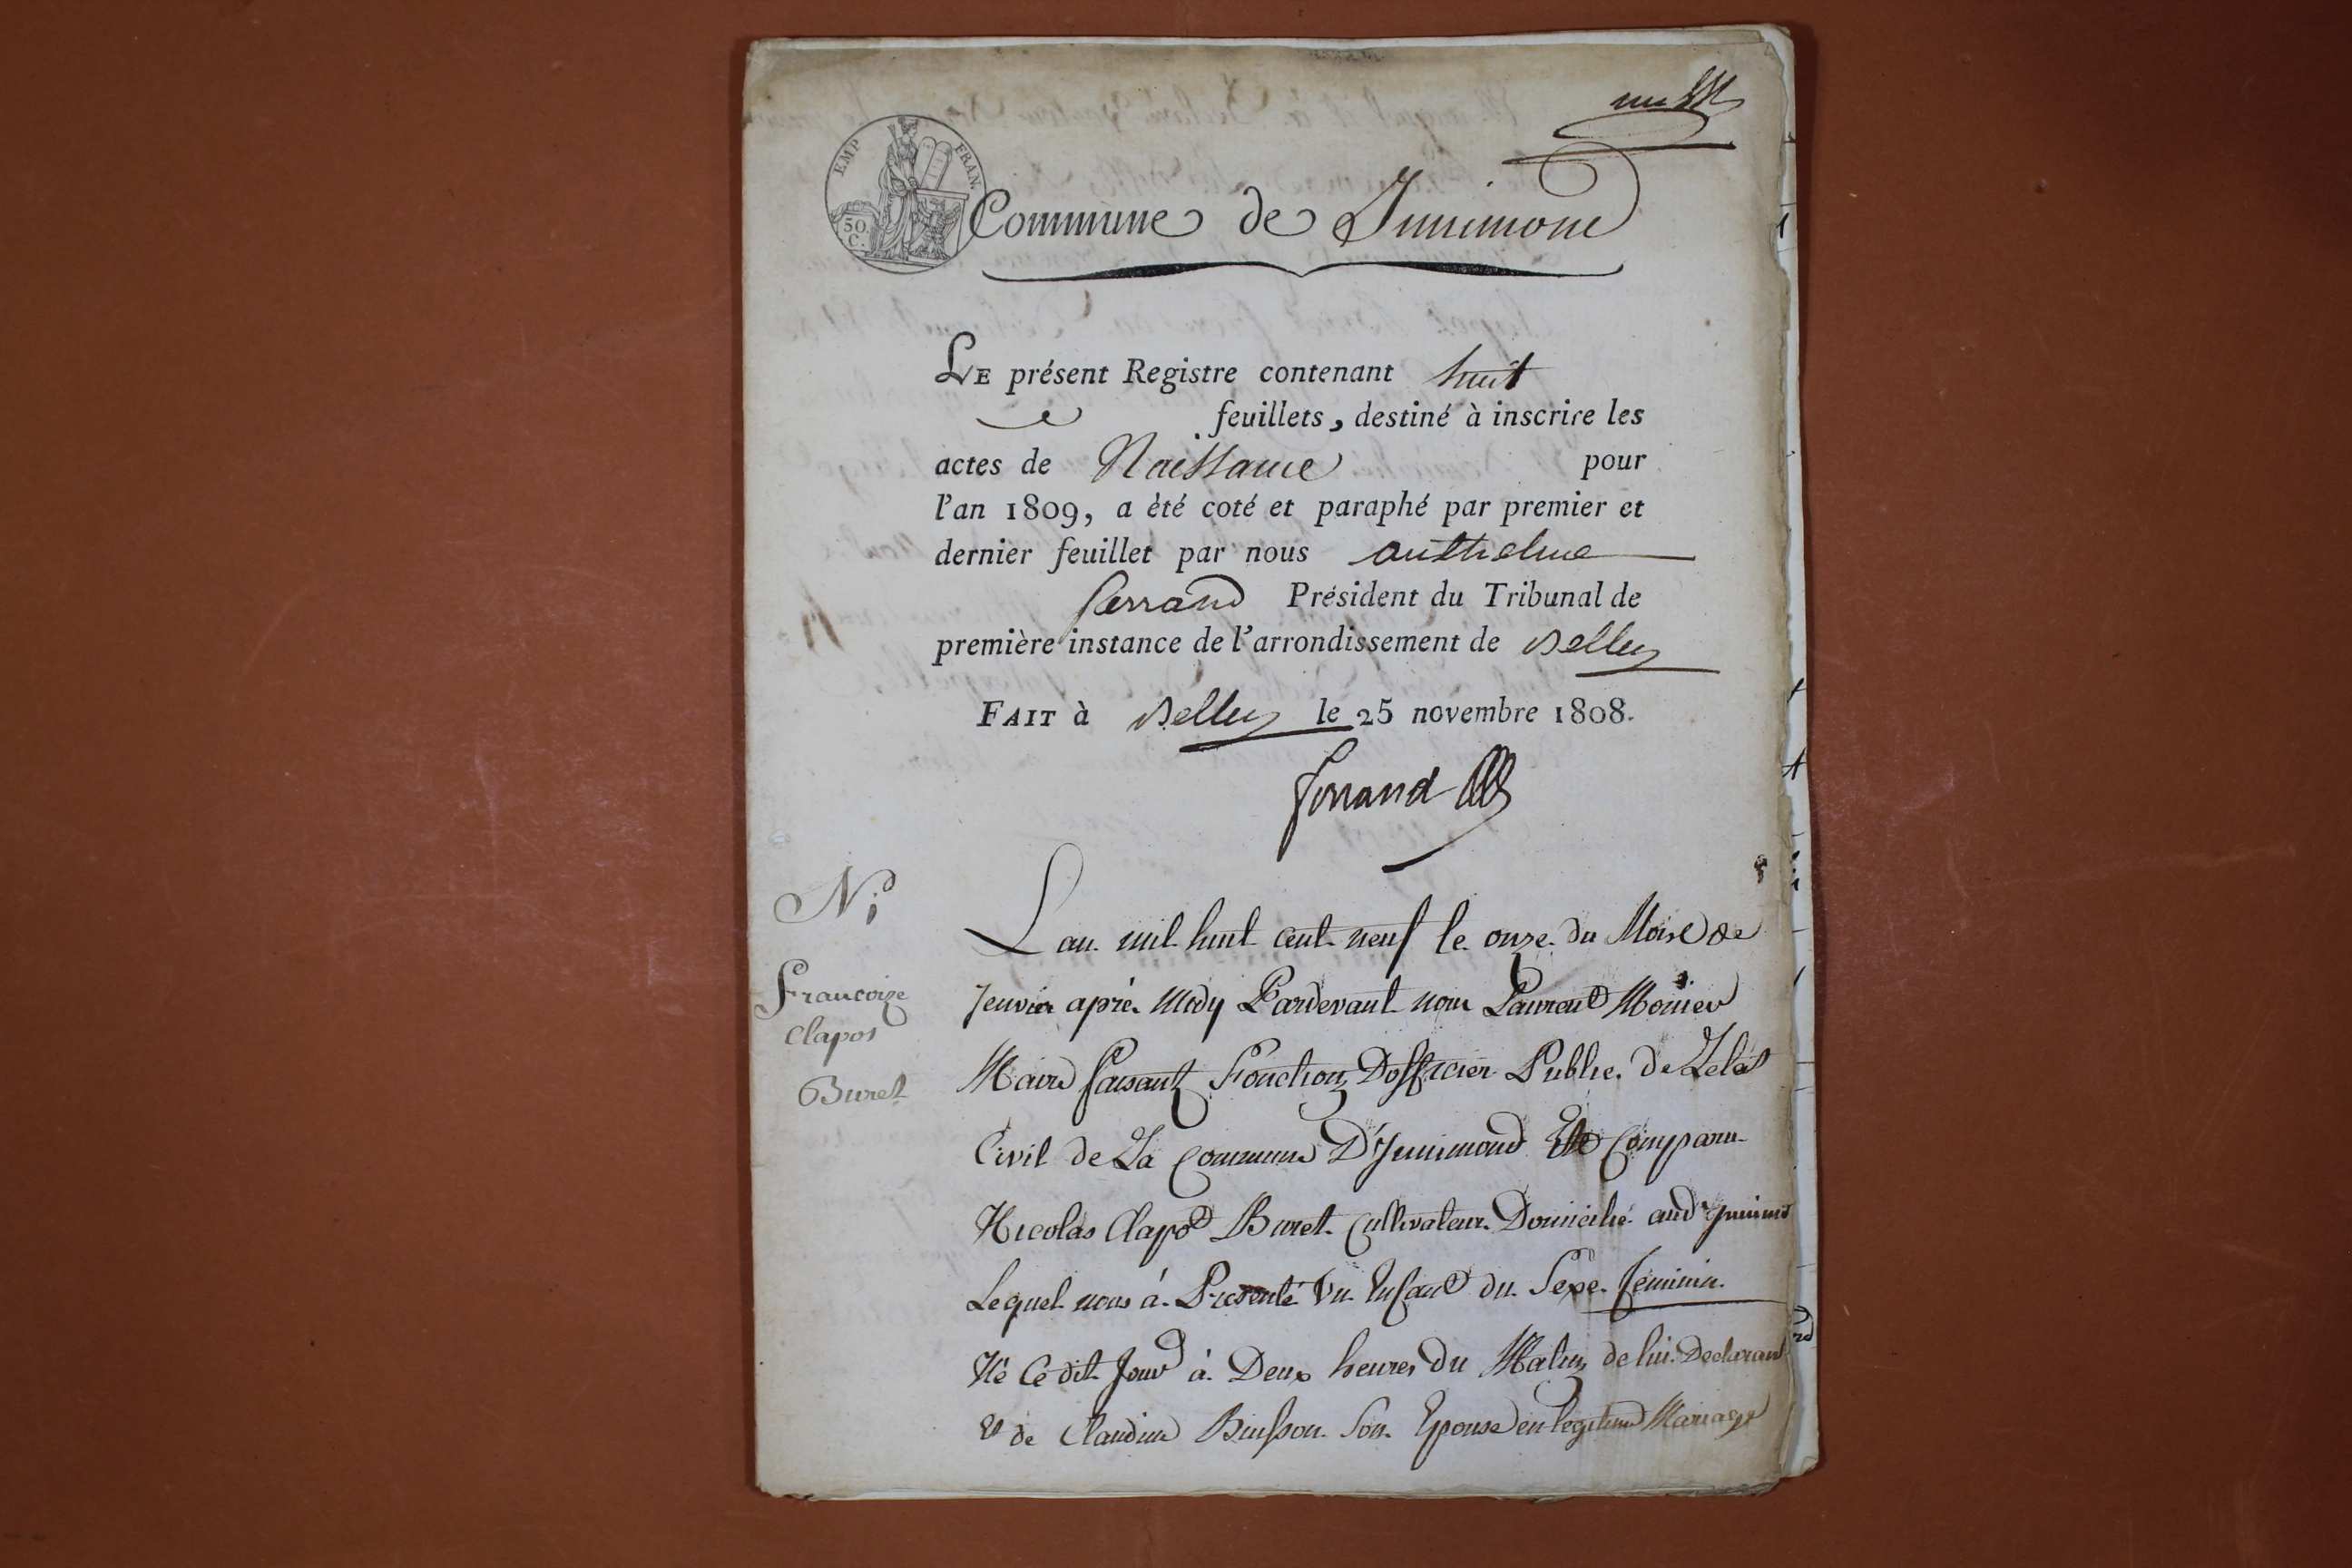 EMP FRAN.
50. C.
Commune de Innimond
LE présent Registre contenant huit
feuillets, destiné à inscrire les
actes de Naissance pour
l'an 1809, a èté coté et paraphé par premier et
dernier feuillet par nous anthelme
ferrand Président du Tribunal de
première instance de l'arrondissement de Belley
FAIT à Belley le 25 novembre 1808.
ferrand
N.
Francoize
Clapot
Buret
Lan mil huit cent neuf le onze du Mois de
Jenvier aprè Midy Pardevant nous Laurent Monier
Maire faisant Fonction Dofficier Public de Letat
Civil de La Commune D'Innimond Est Comparu
Nicolas Clapot Buret Cultivateur Domicilié aud innimd
Lequel nous à Presenté Un Enfant du Sexe feminin
Né Ce dit Jour à Deux heures Du Matin de lui Declarant
Et de Claudine Buisson Son Epouse en legitime Mariage